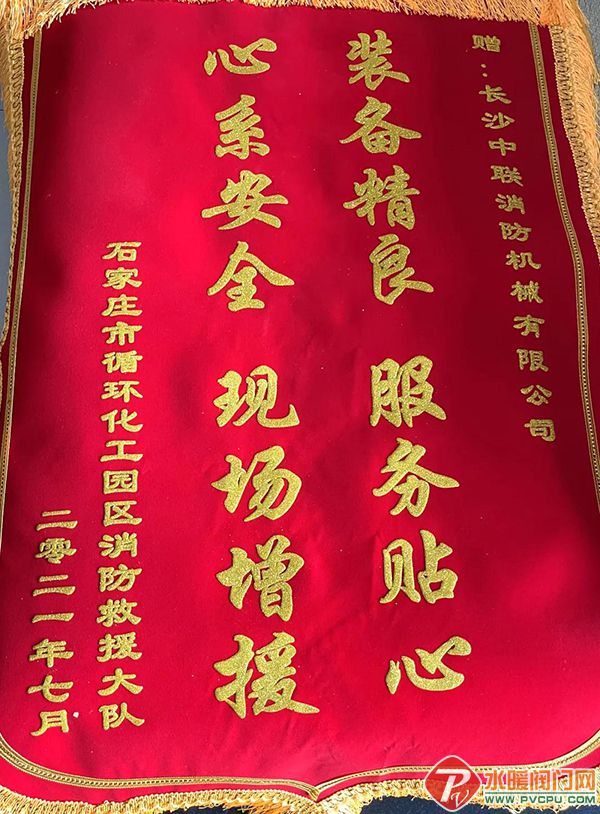 赠：长沙中联消防机械有限公司
装备精良 服务贴心
心系安全 现场增援
石家庄市循环化工园区消防救援大队
二零二一年七月
水暖阀门网
WWW.PVCPU.COM